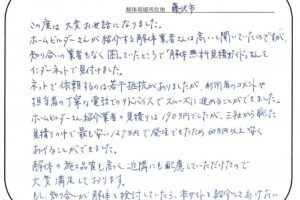 解体現場所在地 藤沢市
この度は大変お世話になりました。
ホームビルダーさんが紹介する解体業者さんは高いと聞いていたのですが、
知り合いの業者もなく困っていたところで「解体無料見積ガイド」さんを
インターネットで見付けました。
ネットで依頼するのは若干抵抗がありましたが、利用者のコメントや
担当者の丁寧な電話でのアドバイスでスムーズに進めることができました。
ホームビルダーさん紹介業者の見積りは190万円でしたが、三社から頂いた
見積りの中で最も安い127万円で発注できたため60万円以上安く
あげることができました。
解体の施工品質も高く、近隣にも配慮していただけたので
大変満足しております。
もし知り合いが解体を検討していたら、本サイトを紹介してあげたい